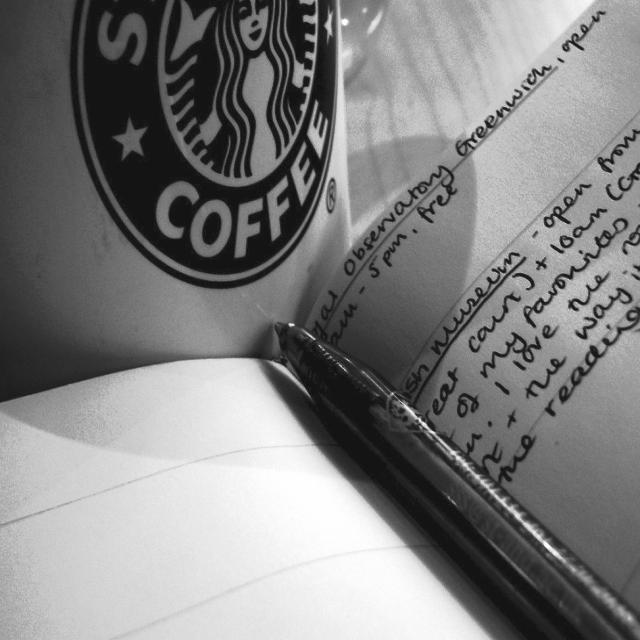 S
COFFEE
®
Observatory Greenwich, open
- 5pm, free
museum - open from
eat court) + loan (
of my favourites
I love the way
+ the
the reading